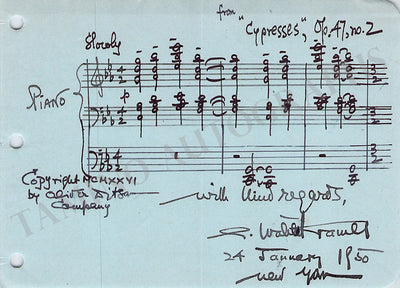 from "Cypresses", Op. 47, no. 2
Slowly
PIANO
p
Copyright MCMXXVI
by Oliver Ditson
Company
with kind regards,
A. Walter Kramer
24 January 1950
New York
TAMINO AUTOGRAPHS